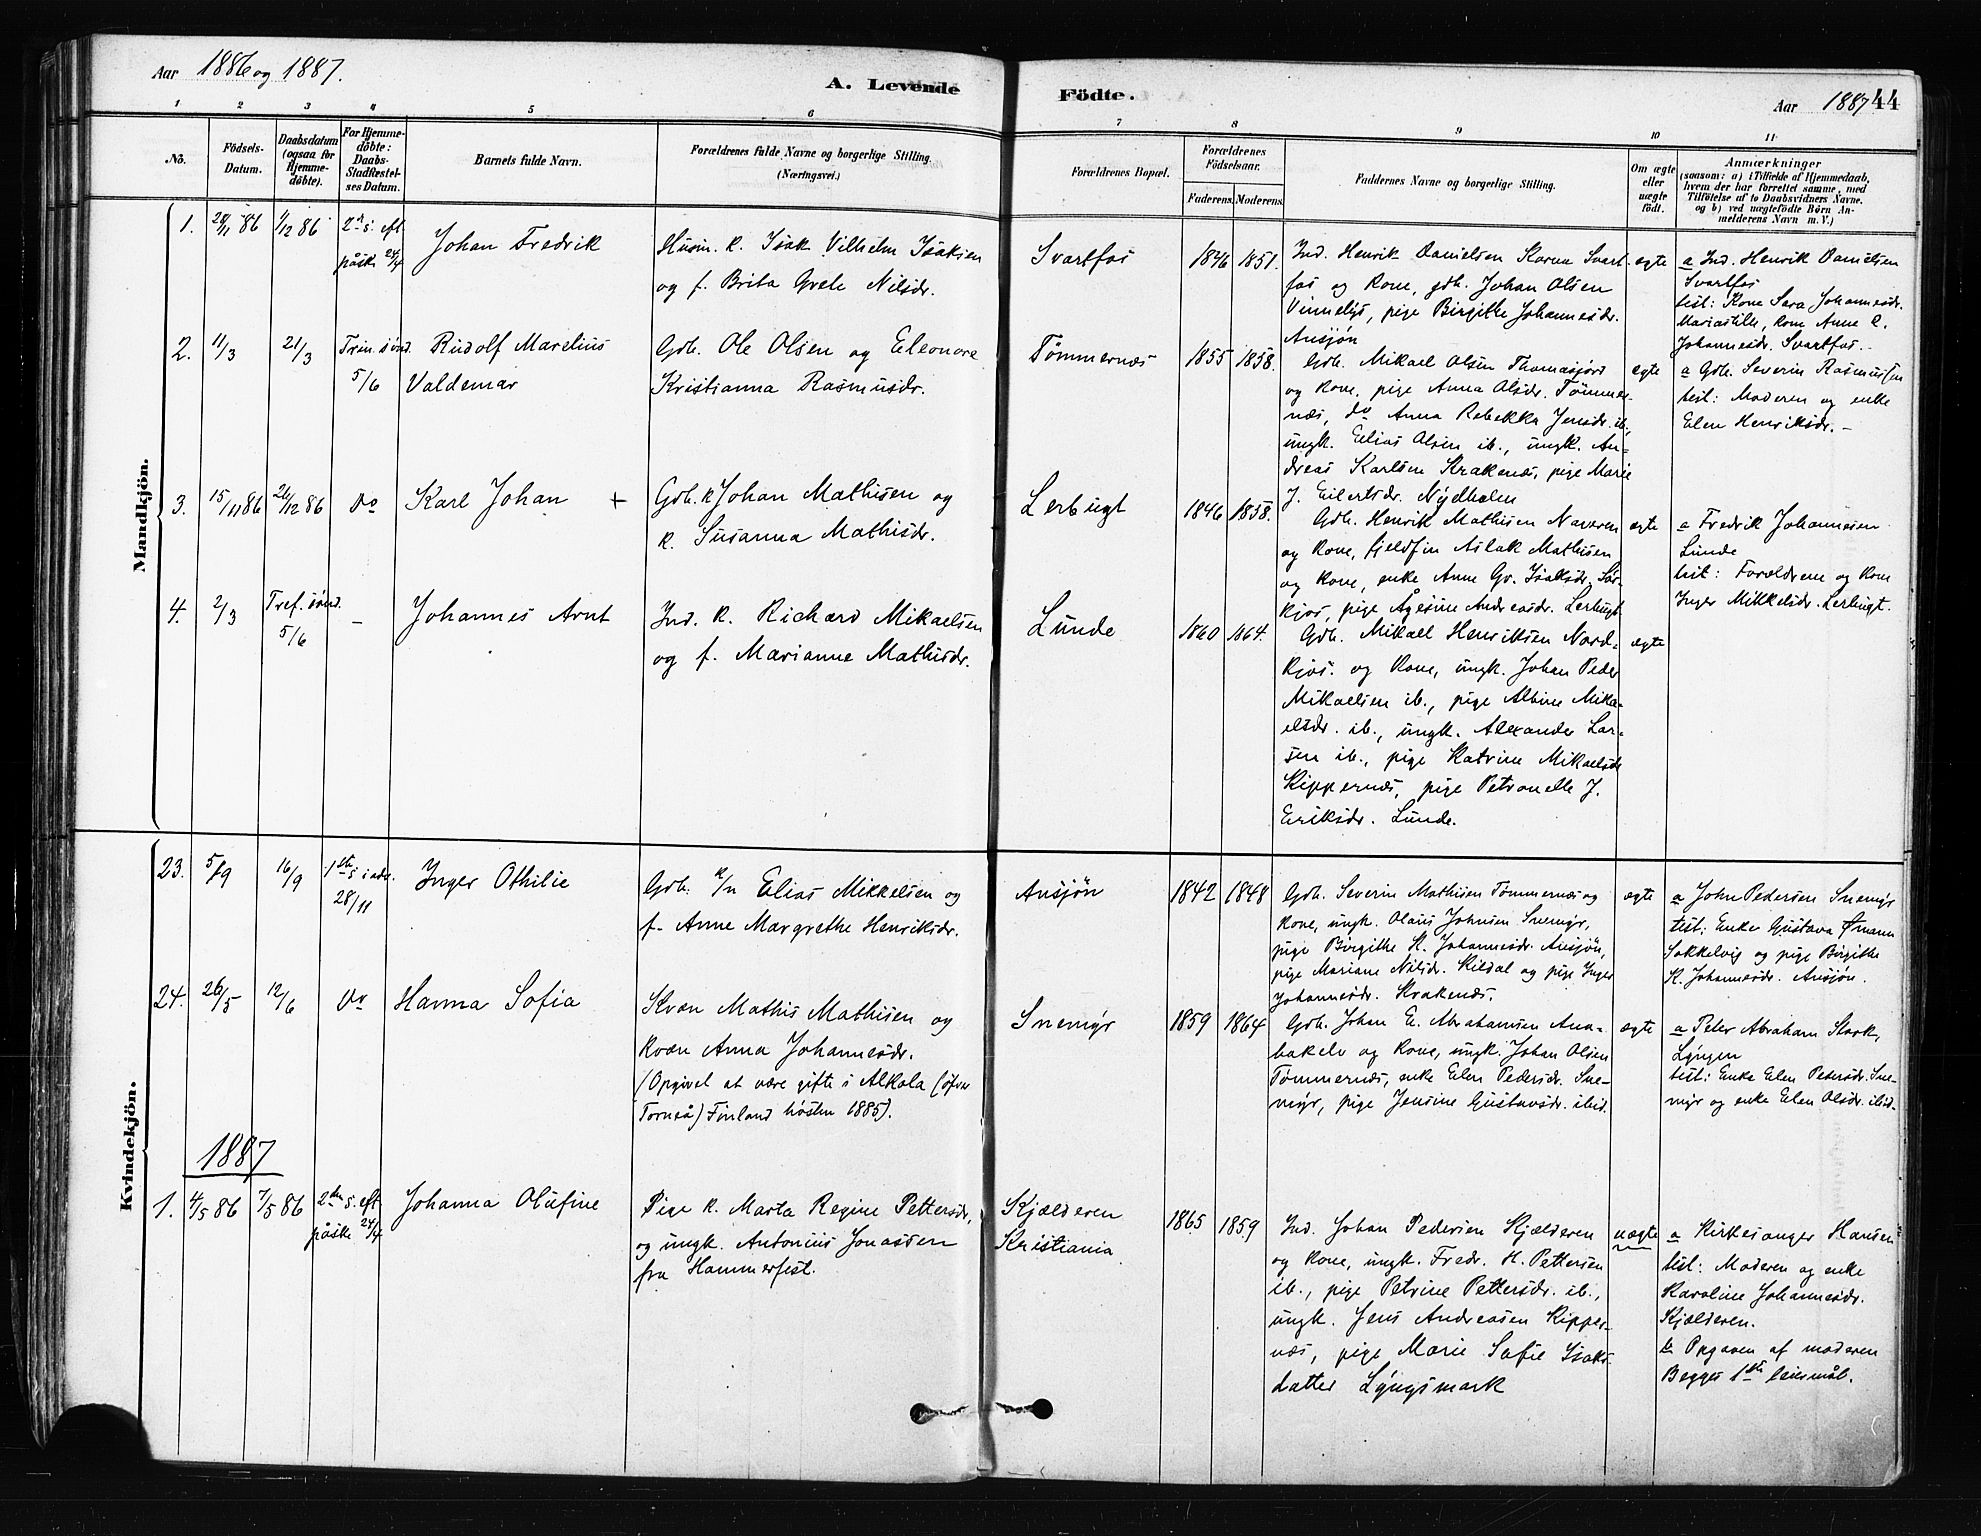 Aar 1886 og 1887.
A. Levende
Födte.
Aar 1887 44
1 2 3 4 5 6 7 8 9 10 11
No.
Födsels-
Datum.
Daabsdatum
(ogsaa for
Hjemme-
döbte).
For Hjemme-
döbte:
Daabs-
Stadfæstel-
ses Datum.
Barnets fulde Navn.
Forældrenes fulde Navne og borgerlige Stilling.
(Næringsvei.)
Forældrenes Bopæl.
Forældrenes
Födselsaar.
Faderens. Moderens.
Faddernes Navne og borgerlige Stilling.
Om ægte
eller
uægte
født.
Anmærkninger
(saasom: a) i Tilfælde af Hjemmedaab,
hvem der har forrettet samme, med
Tilföielse af to Daabsvidners Navne.
og b) ved uægtefödte Börn An-
melderens Navn m. V.)
Mandkjön.
1. 28/11 86 1/12 86 2den s. eft.
påske 24/4
Johan Fredrik
Husm. k. Isak Vilhelm Isaksen
og f. Brita Grete Nilsdr.
Svartfos
1846 1851.
Ind. Henrik Danielsen Svart
fos og kone, gdb. Johan Olsen
Vinnelys, pige Birgithe Johannesdr.
Ansjøn
ægte
a Ind. Henrik Danielsen
Svartfos
test: Kone Sara Johannesdr.
kone Anne
Johannesdr. Svartfos.
2. 11/3 21/3 Trin. sönd.
5/6
Rudolf Marelius
Valdemar
Gdb. Ole Olsen og Eleonore
Kristianna Rasmusdr.
Tømmernæs
1855 1858.
Gdb. Mikael Olsen Thomasjord
og kone, pige Anna Olsdr. Tømmer-
næs, do Anna Rebekka Jensdr. ib.,
ungk. Elias Olsen ib., ungk. An-
dreas Karlsen Krakenæs, pige Marie
J. Eilertsdr. Nydholm
ægte
a Gdb. Severin Rasmussen
test: Moderen og enke
Elen Henriksdr. -
3. 15/11 86 26/12 86 do
Karl Johan +
Gdb. k Johan Mathisen og
k. Susanna Mathisdr.
Lerbugt
1846 1858.
Gdb. Henrik Mathisen Navaren
og kone, fjeldfin Aslak Mathisen
og kone, enke Anne Gr. Isaksdr. Sör-
kjos, pige Ågesine Andreasdr. Lerbugt.
ægte
a Fredrik Johannesen
Lunde
test: Forældrene og kone
Inger Mikkelsdr. Lerbugt.
4. 2/3 Tref. sönd.
5/6 -
Johannes Arnt
Ind. k. Richard Mikaelsen
og f. Marianne Mathisdr.
Lunde
1860 1864.
Gdb. Mikael Henriksen Nord-
kjos. og kone, ungk. Johan Peder
Mikaelsen ib., pige Albine Mika-
elsdr. ib., ungk. Alexander Lar-
sen ib., pige Katrine Mikaelsdr
Kippernæs, pige Petronelle J.
Eriksdr. Lunde.
ægte
Kvindekjön.
23. 5/9 16/9 1ste s. i adv.
28/11
Inger Othilie
Gdb. k/n Elias Mikkelsen og
f. Anne Margrethe Henriksdr.
Ansjön
1842 1848
Gdb. Severin Mathisen Tömmernæs og
kone, ungk. Olaus Johnsen Snemyr,
pige Birgithe K. Johannesdr. Ansjön,
pige Mariane Nilsdr. Kildal og pige Inger
Johannesdr. Krakenæs.
ægte
a John Pedersen Snemyr
test: Enke Gustava Ømann
Sokkelvig og pige Birgithe
K. Johannesdr. Ansjön.
24. 26/5 12/6 do
Hanna Sofia
Kvæn Mathis Mathisen og
kvæn Anna Johannesdr.
(Opgivet at være gifte i Alkola (öfver
Torneå) Finland hösten 1885).
Snemyr
1859 1864
Gdb. Johan E. Abrahamsen Ana-
bakelv og kone, ungk. Johan Olsen
Tømmernæs, enke Elen Pedersdr. Sne-
myr, pige Jensine Gustavsdr. ibid.
ægte
a Peter Abraham Stark,
Lyngen
test: Enke Elen Petersdr. Sne-
myr og enke Elen Olsdr. ibid.
1887
1. 4/5 86 7/5 86 2den s. eft.
påske 24/4
Johanna Olufine
Pige k. Marta Regine Pettersdr.,
og ungk. Antonius Jonassen
fra Hammerfest.
Kjælderen
Kristiania
1865 1859
Ind. Johan Pedersen Kjælderen
og kone, ungk. Fredr. H. Pettersen
ib., pige Petrine Pettersdr. ib.,
ungk. Jens Andreasen Kipper-
næs, pige Marie Sofie Isaks
datter Lyngsmark
uægte
a Kirkesanger Hansen
test: Moderen og enke
Karoline Johannesdr.
Kjælderen.
b Opgaven af moderen
Begges 1ste leiermål.